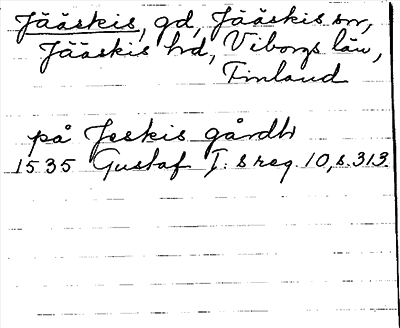 Jääskis, gd, Jääskis sn,
Jääskis hd, Viborgs län,
Finland
på Jeskis gårdh
1535 Gustaf I:s reg. 10, s. 313